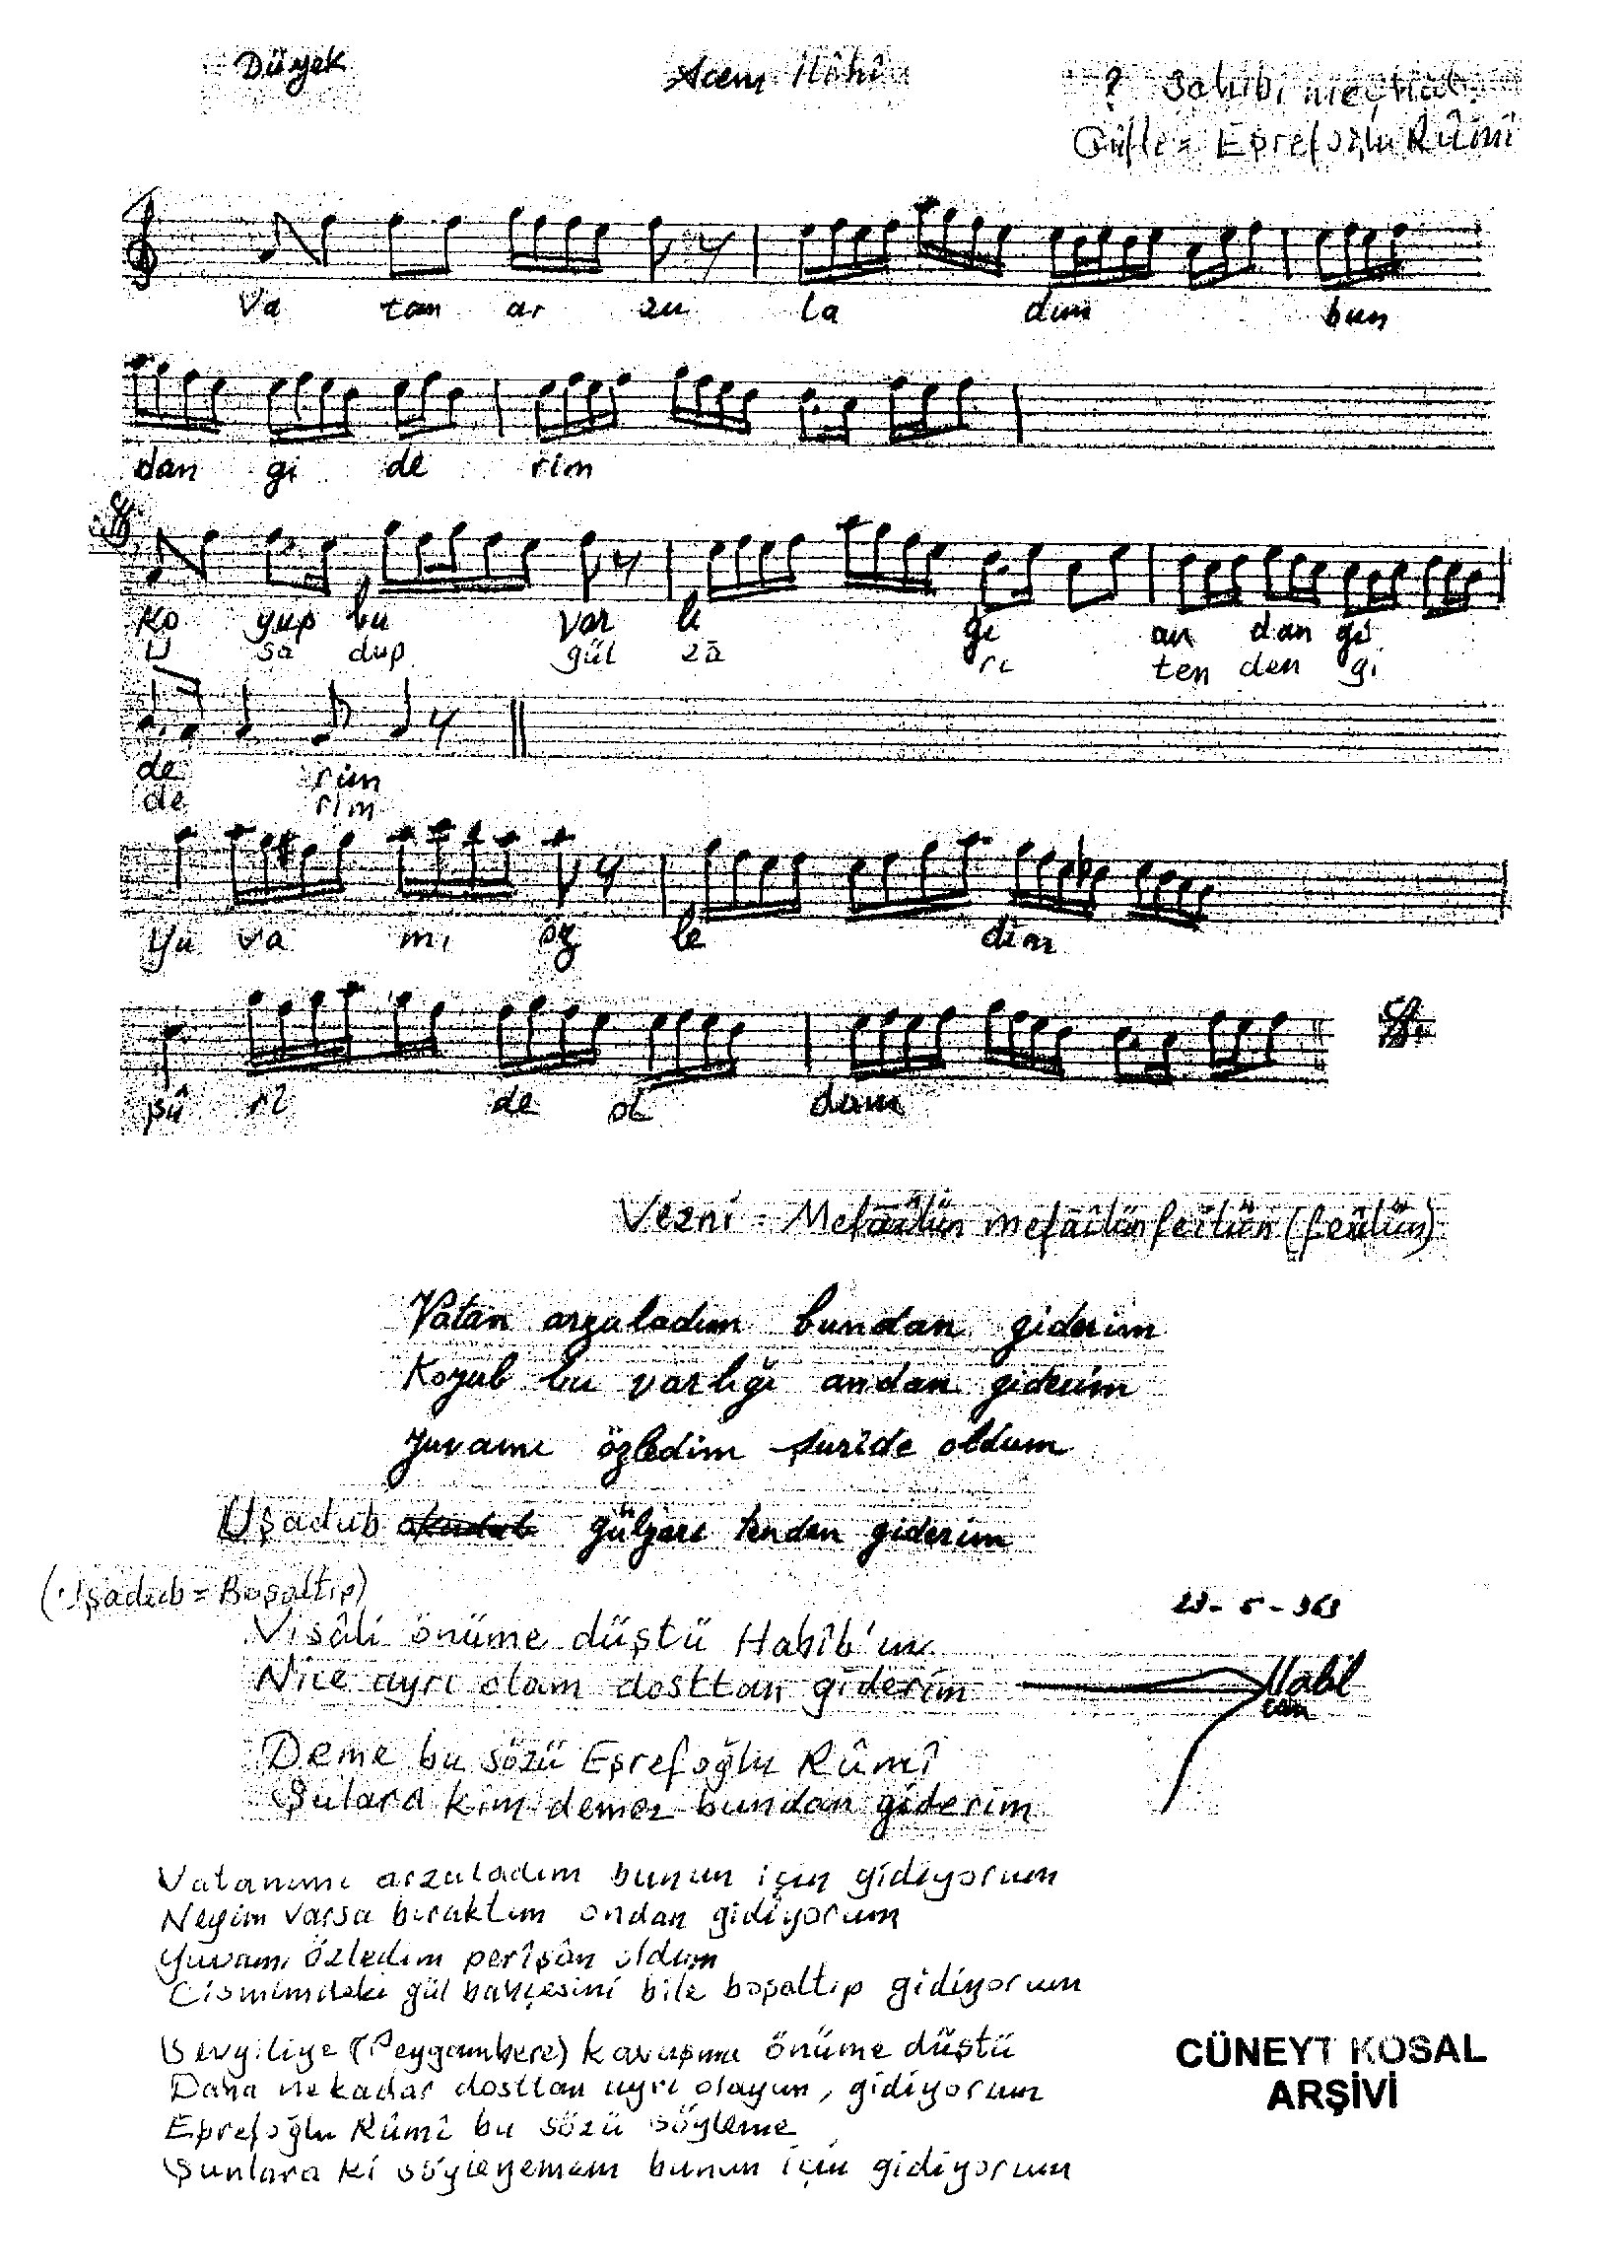 Düyek
Acem İlâhî
? Sahibi meçhul
Güfte = Eşrefoğlu Rûmî
Va tan ar zu la dım bun
dan gi de rim
Ko yup bu var lı ğı an dan gi
U şa dup gül zâ rı ten den gi
de rim
de rim
Yu va mı öz le dim
şû rî de ol dum
Vezni = Mefâîlün mefâîlün feilün (feûlün)
Vatan arzuladım bundan giderim
Koyub bu varlığı andan giderim
Yuvamı özledim şurîde oldum
Uşadub okudub gülzarı tenden giderim
(Uşadub = Boşaltıp)
23-5-963
Visâli önüme düştü Habîb'in
Nice ayrı olam dosttan giderim
Nabil
can
Deme bu sözü Eşrefoğlu Rûmî
Şulara kim demez bundan giderim
Vatanımı arzuladım bunun için gidiyorum
Neyim varsa bıraktım ondan gidiyorum
Yuvamı özledim perîşân oldum
Cismimdeki gül bahçesini bile boşaltıp gidiyorum
Sevgiliye (Peygambere) kavuşma önüme düştü
Daha ne kadar dosttan ayrı olayım, gidiyorum
Eşrefoğlu Rûmî bu sözü söyleme
Şunlara ki söyleyemem bunun için gidiyorum
CÜNEYT KOSAL
ARŞİVİ